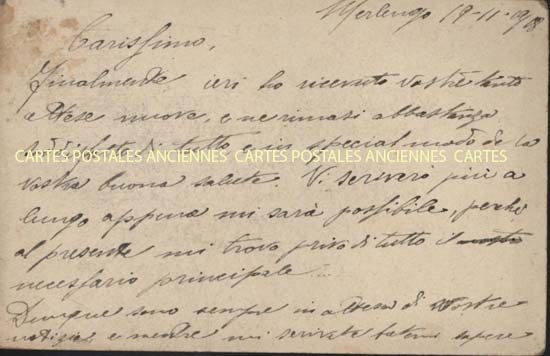 Merlengo 19-11-1918
Carissimo,
Finalmente ieri ho ricevuto vostre tanto
attese nuove, e ne rimasi abbastanza
sodisfatto di tutto e in special modo de la
CARTES POSTALES ANCIENNES CARTES POSTALES ANCIENNES CARTES
vostra buona salute. Vi scriverò più a
lungo appena mi sarà possibile, perchè
al presente mi trovo privo di tutto il
necessario principale....
Dunque sono sempre in attesa di vostre
notizie e mentre mi scrivete fatemi sapere